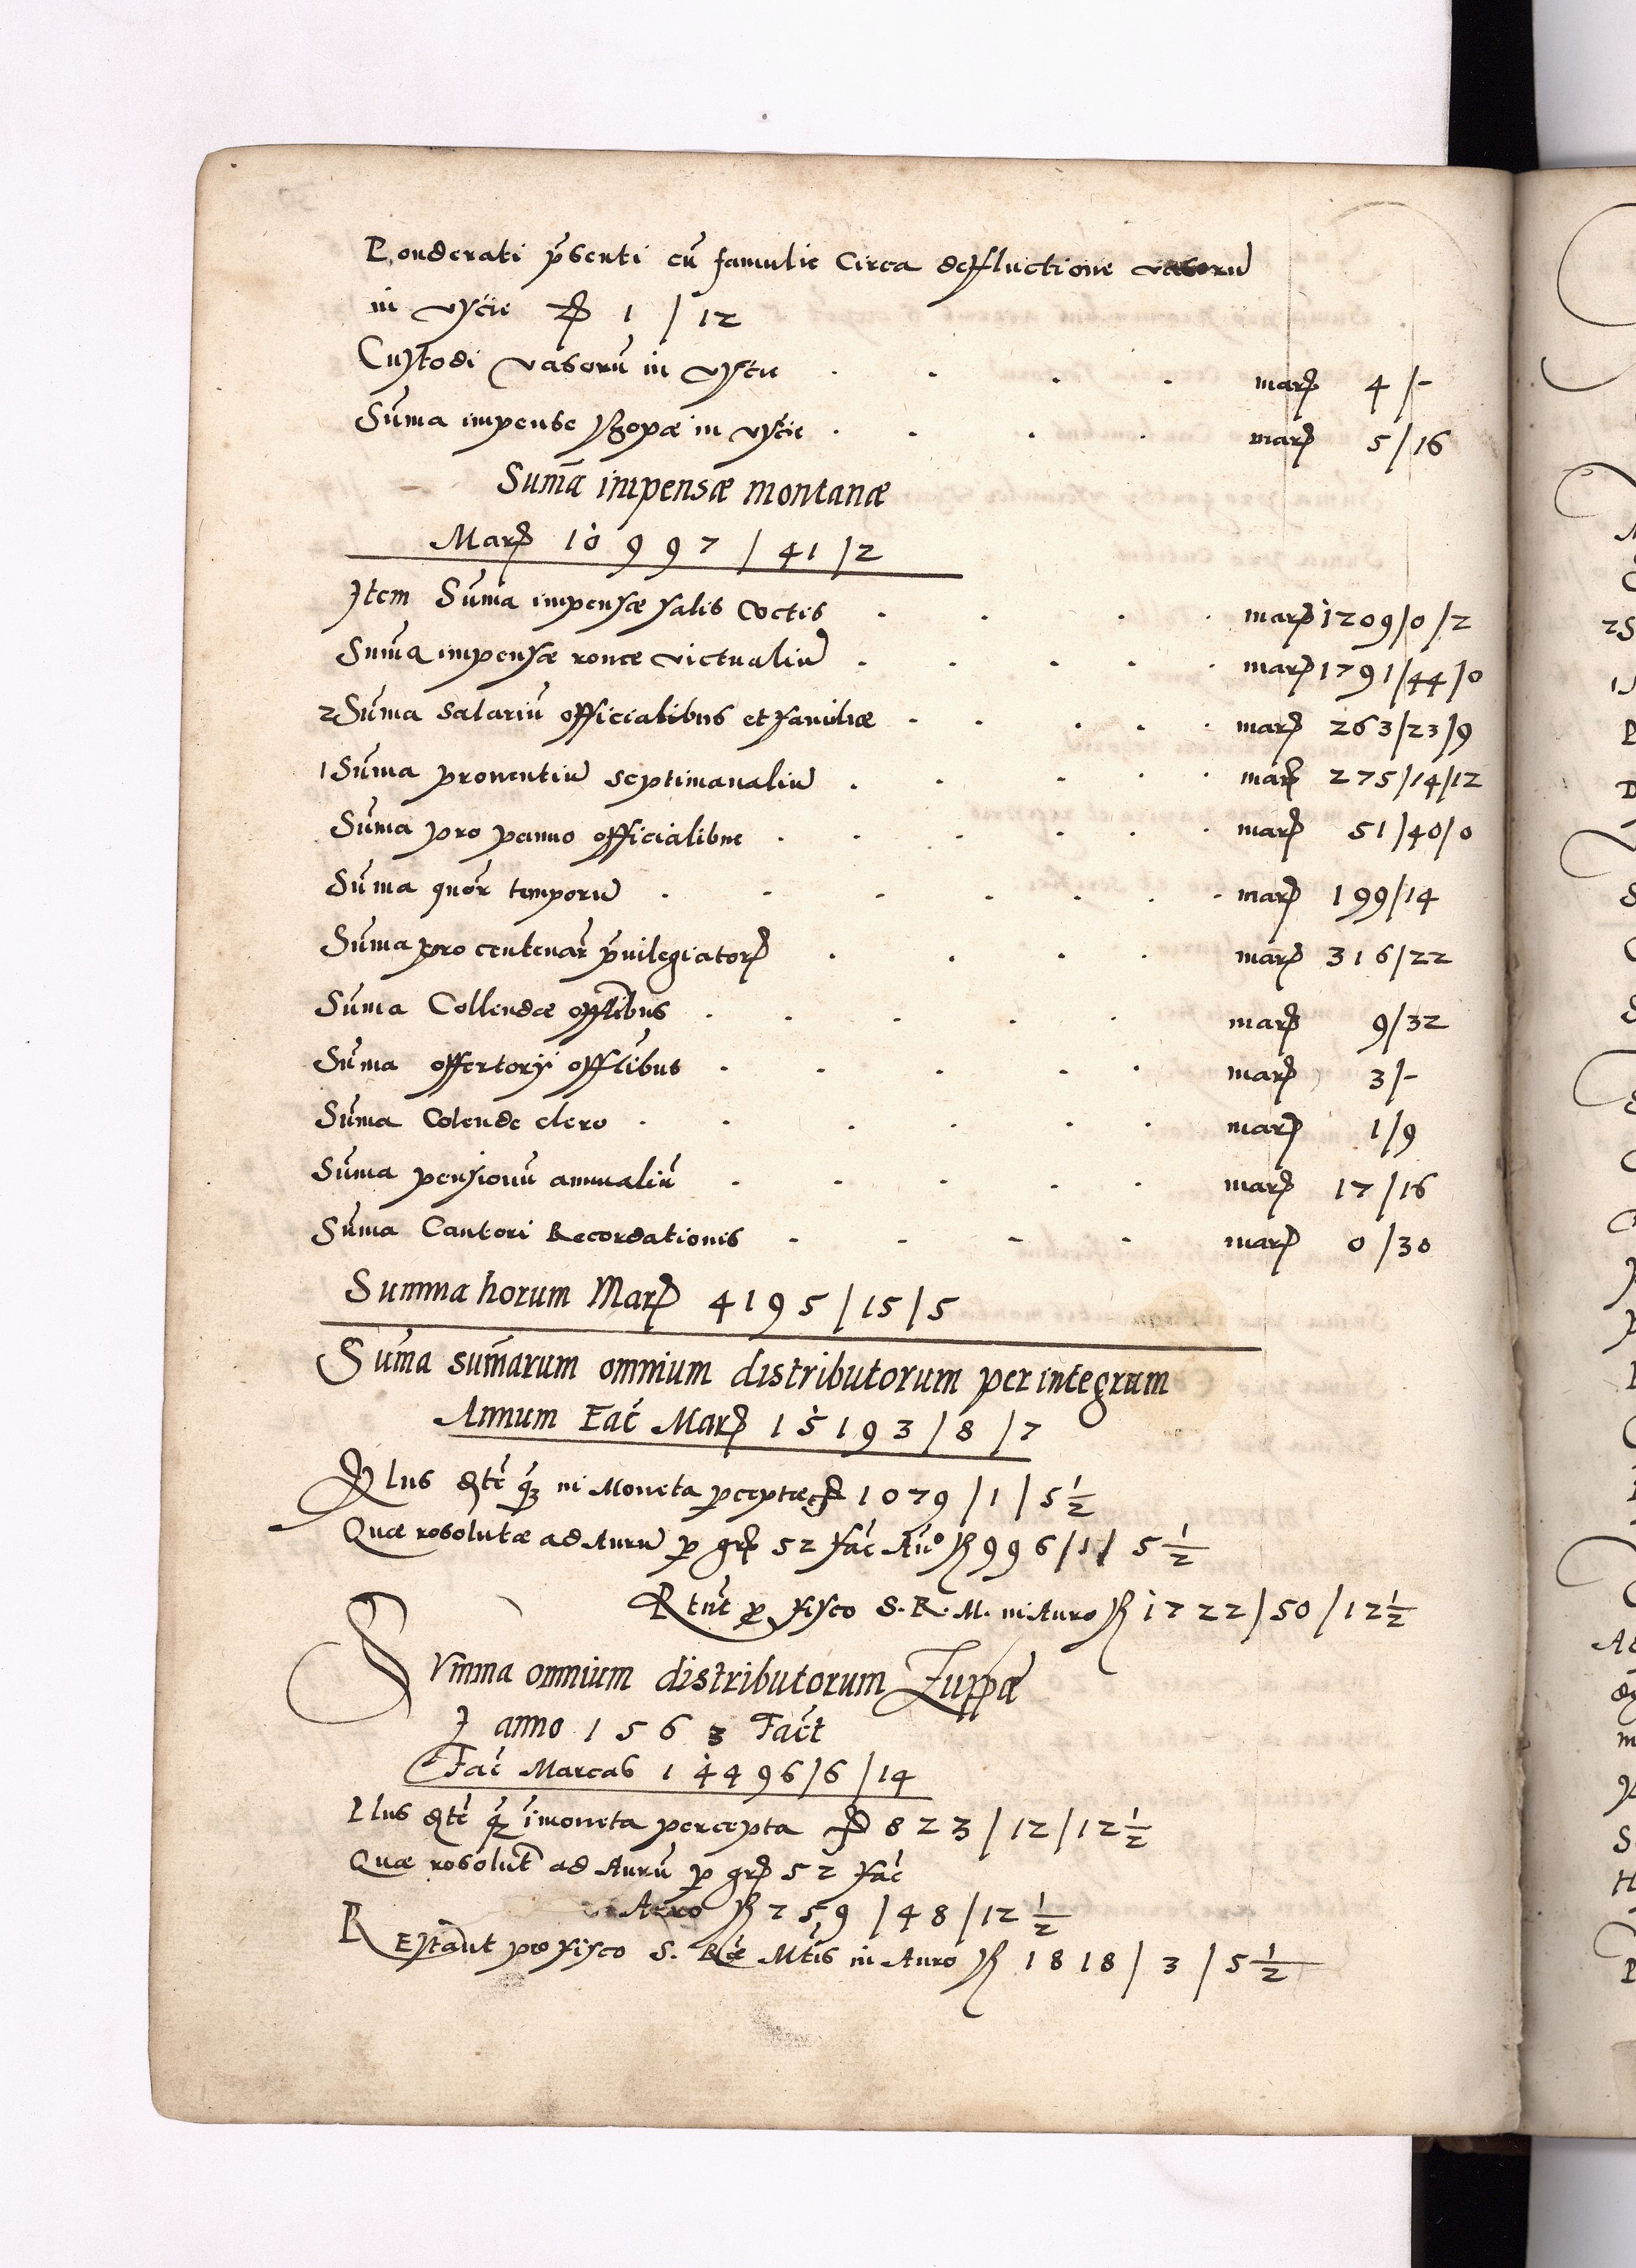 Ponderati p̃senti cũ famulis Circa defluctione vasorũ
in Uście 1 / 12
Custodi vasorũ in Uście . . . . marͨ 4 /-
Suma impense szopæ in Uście . . . . marͨ 5/16
Sum̃a impensæ montanæ
Marͨ 10997 / 41 /2
Item Suma impensæ salis Coctis . . . . marͨ 1209/0/2
Suma impensæ victualiũ . . . . . marͨ 1791/44/0
2 Suma salariũ officialibus et familiæ . . . . . marͨ 263/23/9
1 Suma proventiũ septimanaliũ . . . . . marͨ 275/14/12
Suma pro panno officialibus . . . . . . marͨ 51/40/0
Suma quõr temporũ . . . . . . . marͨ 199/14
Suma pro centenar̃ p̃uilegiatorͨ . . . . marͨ 316/22
Suma Collendæ offl̃ibus . . . . . marͨ 9/32
Suma offertorij offl̃ibus . . . . . marͨ 3/-
Suma Colende clero . . . . . . marͨ 1/9
Suma pensionũ annualiũ . . . . . marͨ 17/16
Suma Cantori Recordationis . . . . marͨ 0/30
Summa horum Marͨ 4195/15/5
Sum̃a sum̃arum omnium distributorum per integrum
Annum Fac̃ Marͨ 15193/8/7
Plus in Moneta p̱ceptæ 1079/1/5 1/2
Quæ resolutæ ad Aurũ p̱ grͨ 52 fac̃ Auͦ 996/1/ 5 1/2
Rt̃ũt p̱ fisco S. R. M. in Auro 1722/50/12 1/2
Summa omnium distributorum Zuppæ
anno 1563 Fac̃t
Fac̃ Marcas 14496/6/14
Plus in moneta percepta 823/12/12 1/2
Quæ resolut̃ ad Aurũ p̱ grͨ 52 fac̃
Auro 759/48/12 1/2
Restañt pro fisco S. R̃æ Mt̃is in Auro 1818/3/5 1/2